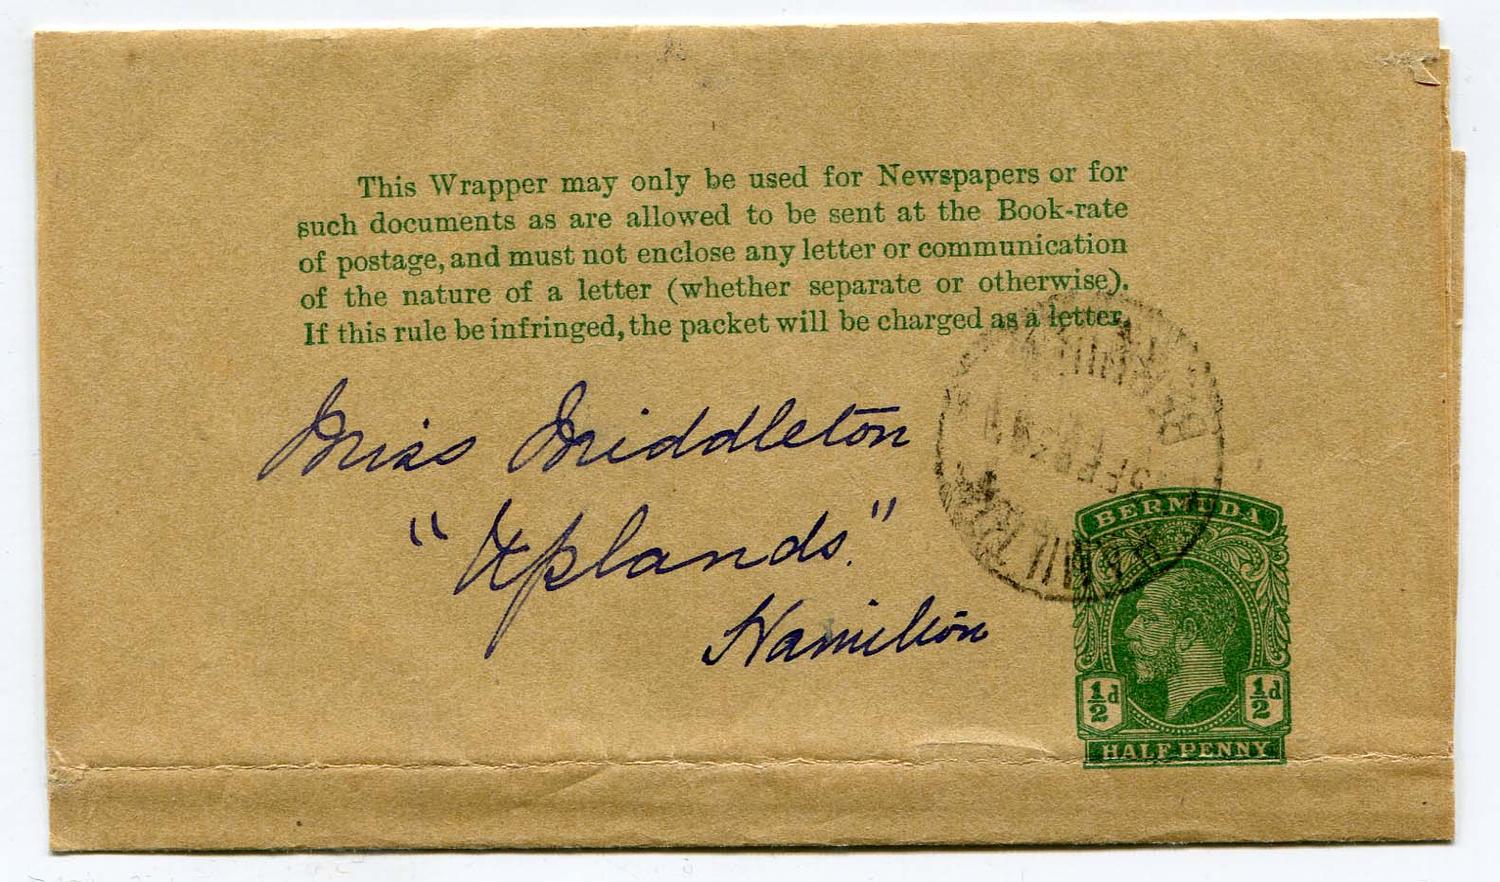 This Wrapper may only be used for Newspapers or for
such documents as are allowed to be sent at the Book-rate
of postage, and must not enclose any letter or communication
of the nature of a letter (whether separate or otherwise).
If this rule be infringed, the packet will be charged as a letter.
Miss Middleton
"Uplands."
Hamilton
HAMILTON
FEB
BERMUDA
½d ½d
HALF PENNY